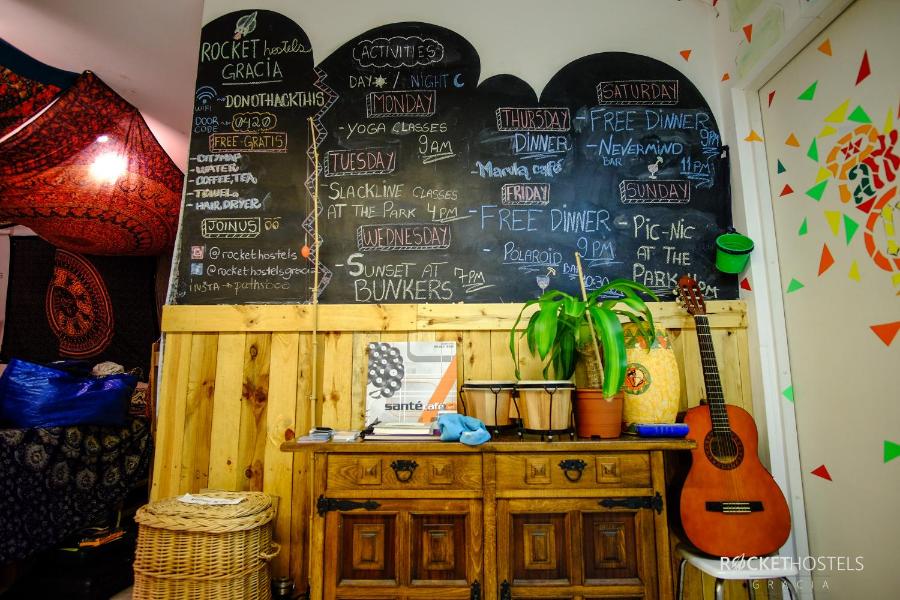 ROCKET hostels
GRACIA
WIFI DONOTHACKTHIS
DOOR CODE 0420
FREE-GRATIS
-CITYMAP
-WATER
-COFFEE, TEA
-TOWEL
-HAIR, DRYER
JOIN US
@rockethostels
@rockethostelsgracia
INSTA
ACTIVITIES
DAY / NIGHT
MONDAY
-YOGA CLASSES
9AM
TUESDAY
-SLACKLINE CLASSES
AT THE PARK 4PM
WEDNESDAY
-SUNSET AT
BUNKERS 7PM
THURSDAY
DINNER
-Manula café
FRIDAY
-FREE DINNER
9PM
-POLAROID BAR
10:30
SATURDAY
-FREE DINNER
9PM
-NEVERMIND
BAR 11PM
SUNDAY
-PIC-NIC
AT THE
PARK
PM
santé café
ROCKETHOSTELS
GRACIA